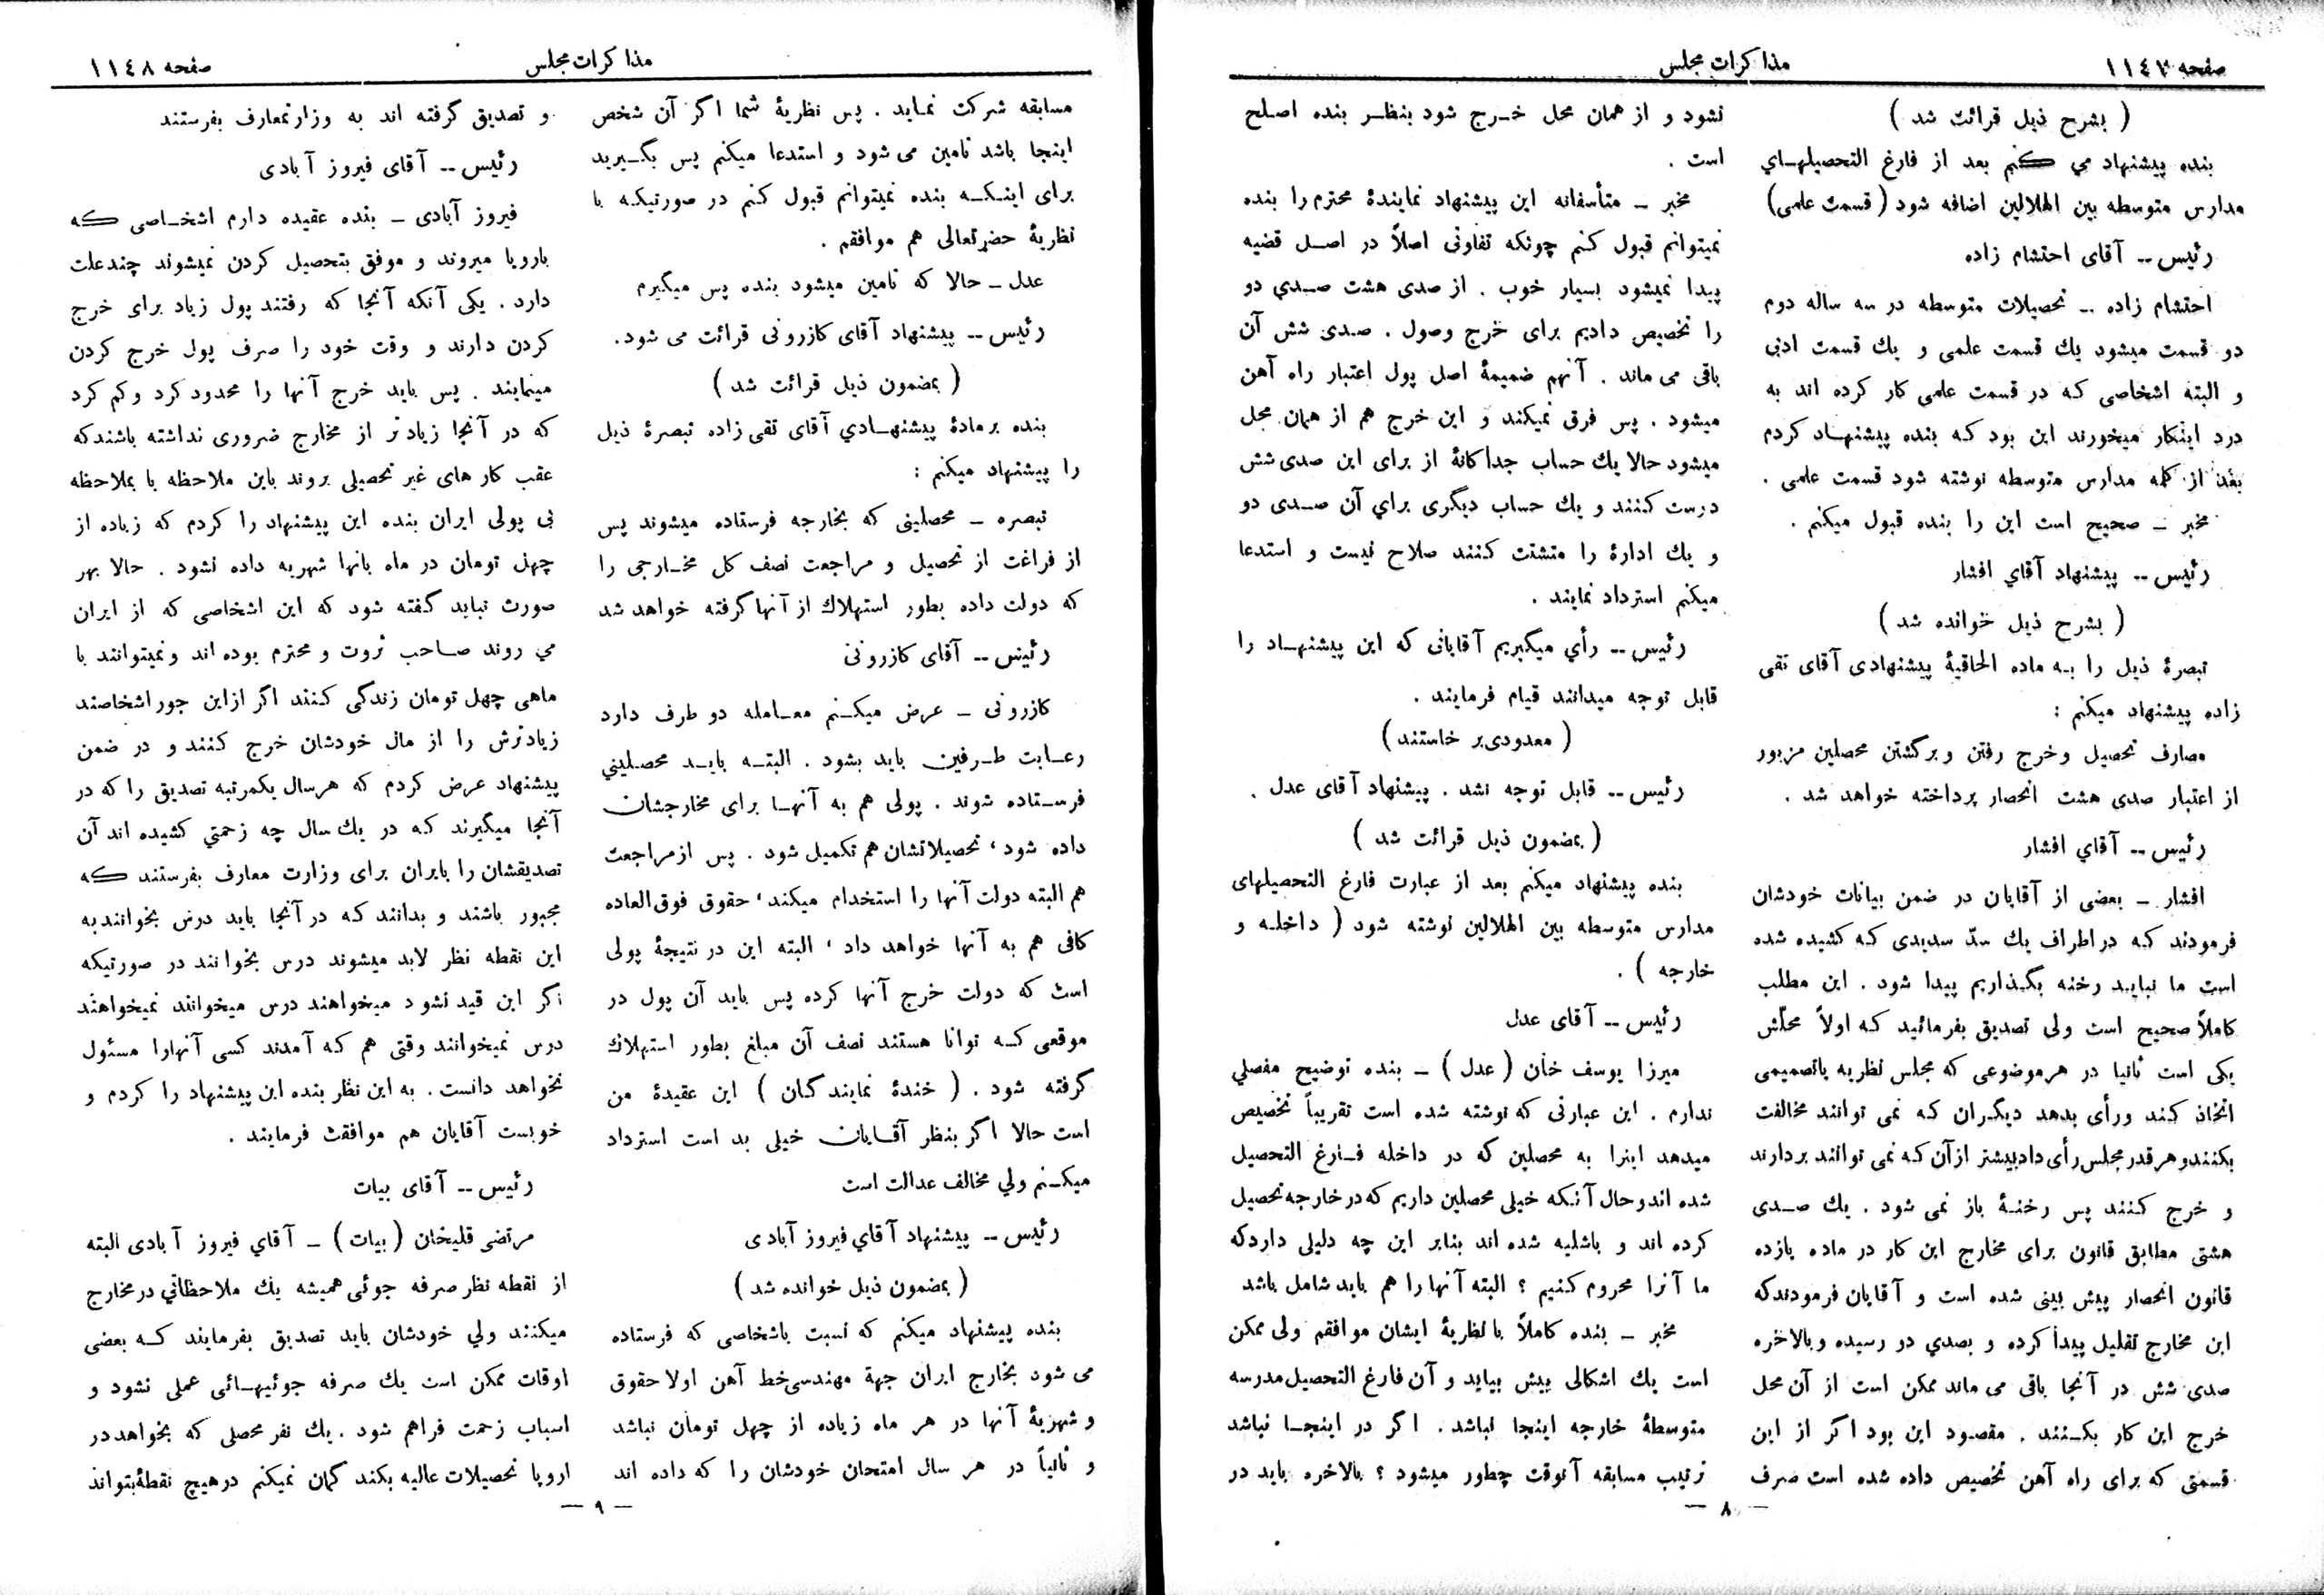 صفحه ١١٤٧
مذاکرات مجلس
( بشرح ذیل قرائت شد )
بنده پیشنهاد می کنم بعد از فارغ التحصیلهـای
مدارس متوسطه بین الهلالین اضافه شود (قسمت علمی)
رئیس -- آقای احتشام زاده
احتشام زاده -- تحصیلات متوسطه در سه ساله دوم
دو قسمت میشود یك قسمت علمی و یك قسمت ادبی
و البته اشخاصی که در قسمت علمی کار کرده اند به
درد اینکار میخورند این بود که بنده پیشنهـاد کردم
بعد از کلمه مدارس متوسطه نوشته شود قسمت علمی .
مخبر ـ صحیح است این را بنده قبول میکنم .
رئیس -- پیشنهاد آقای افشار
( بشرح ذیل خوانده شد )
تبصرهٔ ذیل را بـه ماده الحاقیهٔ پیشنهادی آقای تقی
زاده پیشنهاد میکنم :
مصارف تحصیل وخرج رفتن و برگشتن محصلین مزبور
از اعتبار صدی هشت انحصار پرداخته خواهد شد .
رئیس -- آقای افشار
افشار ـ بعضی از آقایان در ضمن بیانات خودشان
فرمودند که در اطراف یك سدّ سدیدی کـه کشیده شده
است ما نبایـد رخنه بگـذاریم پیدا شود . این مطلب
کاملاً صحیح است ولی تصدیق بفرمائید کـه اولاً محلّش
یکی است ثانیا در هرموضوعی که مجلس نظریه یاتصمیمی
اتخاذ کند ورأی بدهد دیگـران کـه نمی توانند مخالفت
بکنندوهرقدرمجلس رأی داد بیشتر ازآن کـه نمی توانند بردارند
و خرج کـنند پس رخنـهٔ باز نمی شود . یك صـدی
هشتی مطابق قانون برای مخارج این کار در ماده یازده
قانون انحصار پیش بینی شده است و آقایان فرمودندکه
این مخارج تقلیل پیدا کرده و بصدی دو رسیده وبالاخره
صدی شش در آنجا باقی می ماند ممکن است از آن محل
خرج این کار بکـنند . مقصـود این بود اگر از این
قسمتی که برای راه آهن تخصیص داده شده است صرف
نشود و از همان محل خـرج شود بنظـر بنده اصـلح
است .
مخبر ـ متأسفانه این پیشنهاد نمایندهٔ محترم را بنده
نمیتوانم قبول کنم چونکه تفاوتی اصلاً در اصـل قضیه
پیدا نمیشود بسیار خوب . از صدی هشت صـدی دو
را تخصیص دادیم برای خرج وصول . صدی شش آن
باقی می ماند . آنهم ضمیمهٔ اصل پول اعتبار راه آهن
میشود . پس فرق نمیکند و این خرج هم از همان محل
میشود حالا یك حساب جداگانهٔ از برای این صدی شش
درست کنند و یك حساب دیگری برای آن صـدی دو
و یك ادارهٔ را متشتت کنند صلاح نیست و استدعا
میکنم استرداد نمایند .
رئیس -- رأی میگیریم آقایانی که این پیشنهـاد را
قابل توجه میدانند قیام فرمایند .
( معدودی بر خاستند )
رئیس -- قابل توجه نشد . پیشنهاد آقای عدل .
( بمضمون ذیل قرائت شد )
بنده پیشنهاد میکنم بعد از عبارت فارغ التحصیلهای
مدارس متوسطه بین الهلالین نوشته شود ( داخلـه و
خارجه ) .
رئیس -- آقای عدل
میرزا یوسف خان ( عدل ) ـ بنده توضیح مفصلی
ندارم . این عبارتی که نوشته شده است تقریباً تخصیص
میدهد اینرا به محصلین که در داخله فـارغ التحصیل
شده اند و حال آنکه خیلی محصلین داریم که در خارجه تحصیل
کرده اند و باشلیه شده اند بنابر این چه دلیلی داردکه
ما آنرا محروم کنیم ؟ البته آنها را هم باید شامل باشد
مخبر ـ بنده کاملاً با نظریهٔ ایشان موافقم ولی ممکن
است یك اشکالی پیش بیاید و آن فارغ التحصیل مدرسه
متوسطهٔ خارجه اینجا نباشد . اگر در اینجـا نباشد
ترتیب مسابقه آنوقت چطور میشود ؟ بالاخره باید در
— ٨ —
مذاکرات مجلس
صفحه ١١٤٨
مسابقه شرکت نمـاید . پس نظریهٔ شما اگر آن شخص
اینجا باشد تامین می شود و استدعا میکنم پس بگـیرید
برای اینکـه بنده نمیتوانم قبول کنم در صورتیکـه با
نظریهٔ حضرتعالی هم موافقم .
عدل ـ حالا که تامین میشود بنده پس میگیرم
رئیس -- پیشنهاد آقای کازرونی قرائت می شود.
( بمضمون ذیل قرائت شد )
بنده برمادهٔ پیشنهـادی آقای تقی زاده تبصرهٔ ذیل
را پیشنهاد میکنم :
تبصره ـ محصلینی که بخارجه فرستاده میشوند پس
از فراغت از تحصیل و مراجعت نصف کل مخـارجی را
که دولت داده بطور استهلاك از آنها گرفته خواهد شد
رئیس -- آقای کازرونی
کازرونی ـ عرض میکـنم معـامله دو طرف دارد
رعـایت طـرفین باید بشود . البتـه بایـد محصـلینی
فرسـتاده شوند . پولی هم به آنهـا برای مخارجشان
داده شود ، تحصیلاتشان هم تکمیل شود . پس از مراجعت
هم البته دولت آنها را استخدام میکند ، حقوق فوق العاده
کافی هم به آنها خواهد داد ، البته این در نتیجهٔ پولی
است که دولت خرج آنها کرده پس باید آن پول در
موقعی کـه توانا هستند نصف آن مبلغ بطور استهلاك
گرفته شود . ( خندهٔ نمایندگان ) این عقیدهٔ من
است حالا اگر بنظر آقـایان خیلی بد است استرداد
میکـنم ولی مخالف عدالت است
رئیس -- پیشنهاد آقای فیروز آبادی
( بمضمون ذیل خوانده شد )
بنده پیشنهاد میکنم که نسبت باشخاصی که فرستاده
می شود بخارج ایران جهة مهندسی خط آهن اولا حقوق
و شهریهٔ آنها در هر ماه زیاده از چهل تومان نباشد
و ثانیاً در هر سال امتحان خودشان را که داده اند
و تصدیق گرفته اند به وزارتمعارف بفرستند
رئیس -- آقای فیروز آبادی
فیروز آبادی ـ بنده عقیده دارم اشخـاصی که
باروپا میروند و موفق بتحصیل کردن نمیشوند چندعلت
دارد . یکی آنکه آنجا که رفتند پول زیاد برای خرج
کردن دارند و وقت خود را صرف پول خرج کردن
مینمایند . پس باید خرج آنها را محدود کرد وکم کرد
که در آنجا زیادتر از مخارج ضروری نداشته باشندکه
عقب کار های غیر تحصیلی بروند باین ملاحظه یا بملاحظه
بی پولی ایران بنده این پیشنهاد را کردم که زیاده از
چهل تومان در ماه بانها شهریه داده نشود . حالا بهر
صورت نباید گفته شود که این اشخاصی که از ایران
می روند صـاحب ثروت و محترم بوده اند ونمیتوانند با
ماهی چهل تومان زندگی کـنند اگر ازاین جور اشخاصند
زیادترش را از مال خودشان خرج کـنند و در ضمن
پیشنهاد عرض کردم که هرسال یکمرتبه تصدیق را که در
آنجا میگیرند کـه در یك سال چه زحمتی کشیده اند آن
تصدیقشان را بایران برای وزارت معارف بفرستند که
مجبور باشند و بدانند کـه در آنجا باید درس بخوانند به
این نقطه نظر لابد میشوند درس بخوانند در صورتیکه
اگر این قید نشود میخواهند درس میخوانند نمیخواهند
درس نمیخوانند وقتی هم کـه آمدند کسی آنهارا مسئول
نخواهد دانست . به این نظر بنده این پیشنهاد را کردم و
خوبست آقایان هم موافقت فرمایند .
رئیس -- آقای بیات
مرتضی قلیخان (بیات) ـ آقای فیروز آبادی البته
از نقطه نظر صرفه جوئی همیشه یك ملاحظاتی در مخارج
میکنند ولی خودشان باید تصدیق بفرمایند کـه بعضی
اوقات ممکن است یك صرفه جوئیهـائی عملی نشود و
اسباب زحمت فراهم شود . یك نفر محصلی که بخواهد در
اروپا تحصیلات عالیه بکند گمان نمیکنم در هیچ نقطهٔ بتواند
— ٩ —